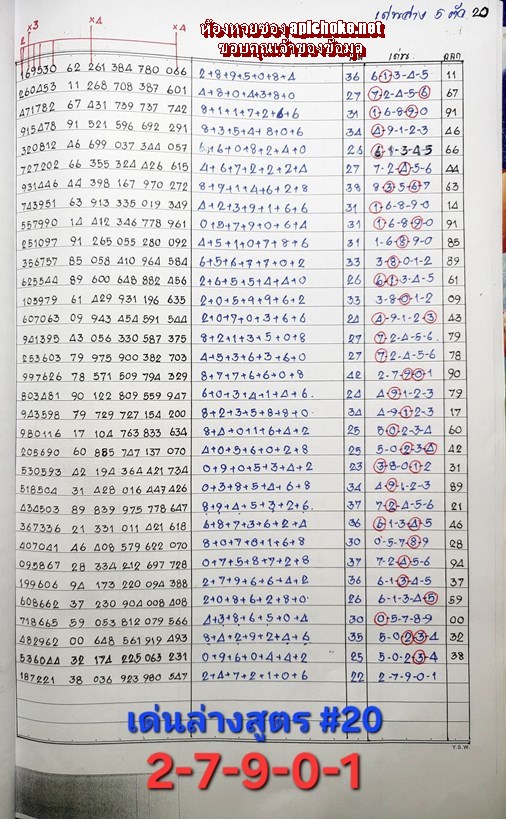 เด่นล่าง 5 ตัว 20
ห้องหายของ aplchoke.net
ขอบคุณเจ้าของข้อมูล
x3 x4 x4
2 เด่น ออก
169530 62 261 384 780 066 2+8+9+5+0+8+4 36 6-1-3-4-5 11
260453 11 268 708 387 601 4+8+0+4+3+8+0 27 7-2-4-5-6 67
471782 67 431 739 737 742 8+1+1+7+2+6+6 31 1-6-8-9-0 91
915478 91 521 596 692 291 8+3+5+4+8+0+6 34 4-9-1-2-3 46
320812 46 699 037 344 057 6+6+0+8+2+4+0 26 6-1-3-4-5 66
727202 66 355 324 426 615 4+6+7+2+2+2+4 27 7-2-4-5-6 44
931446 44 398 167 970 272 8+9+1+4+6+2+8 38 8-3-5-6-7 63
743951 63 913 335 019 349 4+2+3+9+1+6+6 31 1-6-8-9-0 14
557990 14 412 346 778 961 0+5+7+9+0+6+4 31 1-6-8-9-0 91
251097 91 265 055 280 092 4+5+1+0+7+8+6 31 1-6-8-9-0 85
356757 85 058 410 964 584 6+5+6+7+7+0+2 33 3-8-0-1-2 89
625544 89 600 648 882 456 2+6+5+5+4+4+0 26 6-1-3-4-5 61
103979 61 429 931 196 635 2+0+5+9+9+6+2 33 3-8-0-1-2 09
607063 09 943 454 591 544 2+0+7+0+3+6+6 24 4-9-1-2-3 43
941395 43 056 330 587 375 8+2+1+3+5+0+8 27 7-2-4-5-6. 79
253603 79 975 900 382 703 4+5+3+6+3+6+0 27 7-2-4-5-6 78
997626 78 571 509 794 329 8+7+7+6+6+0+8 42 2-7-9-0-1 90
803481 90 122 809 559 947 6+0+3+4+1+4+6. 24 4-9-1-2-3 79
943598 79 729 727 154 200 8+2+3+5+8+8+0. 34 4-9-1-2-3 17
980116 17 104 763 833 634 8+4+0+1+6+4+2 25 5-0-2-3-4 60
205690 60 885 747 137 070 4+0+5+6+0+2+8 25 5-0-2-3-4 42
530593 42 194 364 421 734 0+9+0+5+3+4+2 23 3-8-0-1-2 31
518504 31 428 016 447 426 0+3+8+5+4+6+8 34 4-9-1-2-3 89
434503 89 839 975 778 647 8+9+4+5+3+2+6. 37 7-2-4-5-6 21
367336 21 331 011 421 618 6+8+7+3+6+2+4 36 6-1-3-4-5 46
407041 46 408 579 622 070 8+0+7+8+1+6+8 30 0-5-7-8-9 28
095867 28 334 212 697 728 0+7+5+8+7+2+8 37 7-2-4-5-6 94
199606 94 173 220 094 388 2+7+9+6+6+4+2 36 6-1-3-4-5 37
608662 37 230 904 008 408 2+0+8+6+2+8+0. 26 6-1-3-4-5 59
718665 59 053 812 079 566 4+3+8+6+5+0+4 30 0-5-7-8-9 00
482962 00 648 561 919 493 8+4+2+9+2+4+6 35 5-0-2-3-4 32
536044 32 174 225 063 231 0+9+6+0+4+4+2 25 5-0-2-3-4 38
187221 38 036 923 980 547 2+4+7+2+1+0+6 22 2-7-9-0-1
Y.S.W.
เด่นล่างสูตร #20
2-7-9-0-1